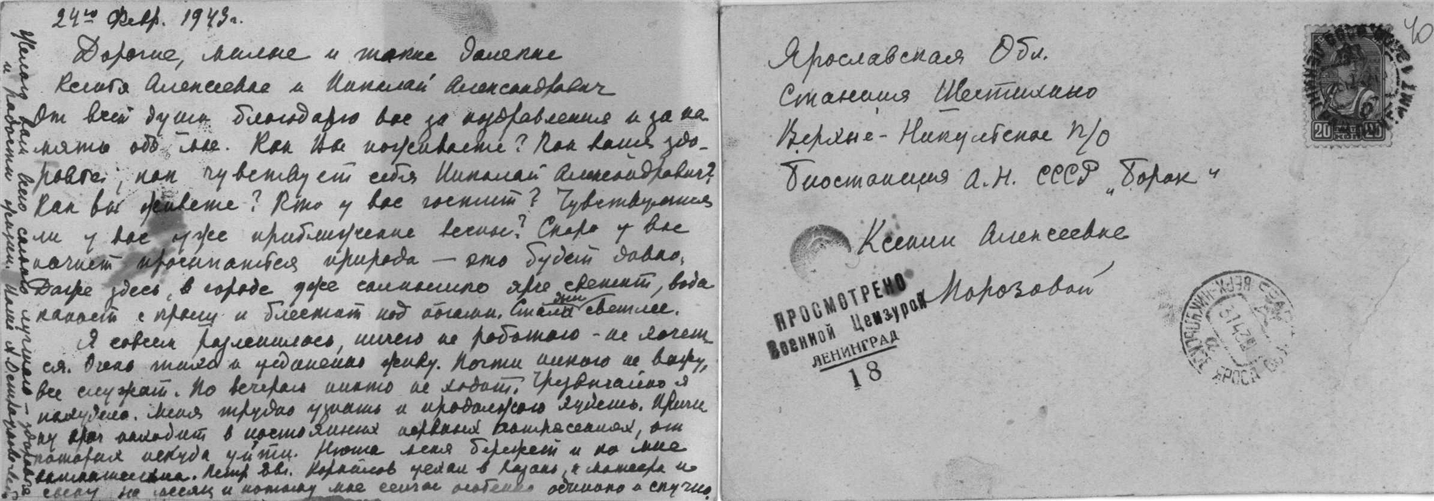 24го Февр. 1943г.
Дорогие, милые и такие далекие
Ксения Алексеевна и Николай Александрович
От всей души благодарю вас за поздравления и за па
мять обо мне. Как Вы поживаете? Как ваше здо-
ровье, как чувствует себя Николай Александрович?
Как вы живете? Кто у вас гостит? Чувствуется
ли у вас уже приближение весны? Скоро у вас
начнет просыпаться природа — это будет давно.
Даже здесь, в городе уже солнышко ярче светит, вода
капает с крыш и блестит под ногами. Стали дни светлее.
Я совсем разленилась, ничего не работаю - не хочет
ся. Очень тихо и уединенно живу. Почти никого не вижу,
все служат. По вечерам никто не ходит. Чрезвычайно я
похудела. Меня трудно узнать и продолжаю худеть. Причи
ну врач находит в постоянных нервных потрясениях, от
которых некуда уйти. Нюша меня бережет и ко мне
внимательна. Петр Ев. Корнилов уехал в Казань, к матери и
сыну на месяц и потому мне сейчас особенно одиноко и скучно.
Желаю вам всего самого лучшего — здоровья
и радости жизни. Ваша А. Остроумова-Л.
40
Ярославская Обл.
Станция Шестихино
Верхне-Никульское п/о
Биостанция А.Н. СССР „Борок"
Ксении Алексеевне
Морозовой
20 20
ПРОСМОТРЕНО
Военной Цензурой
ЛЕНИНГРАД
18